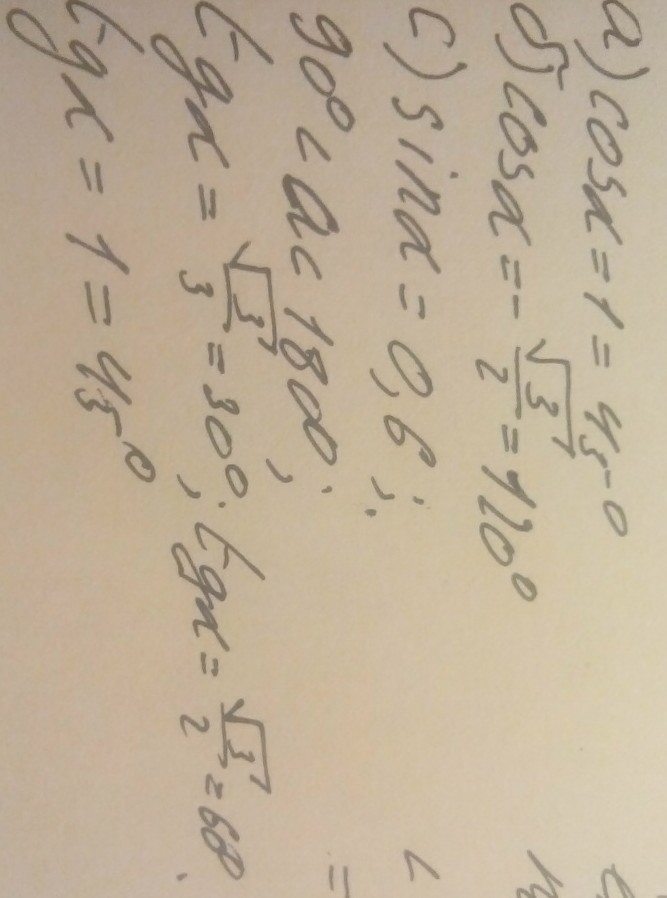 a) cosx = 1 = 45°
б) cosx = - √3/2 = 120°
c) sinx = 0,6 ;
90° < a < 180 ;
tgx = √3/3 = 30° ; tgx = √3/2 = 60 .
tgx = 1 = 45°